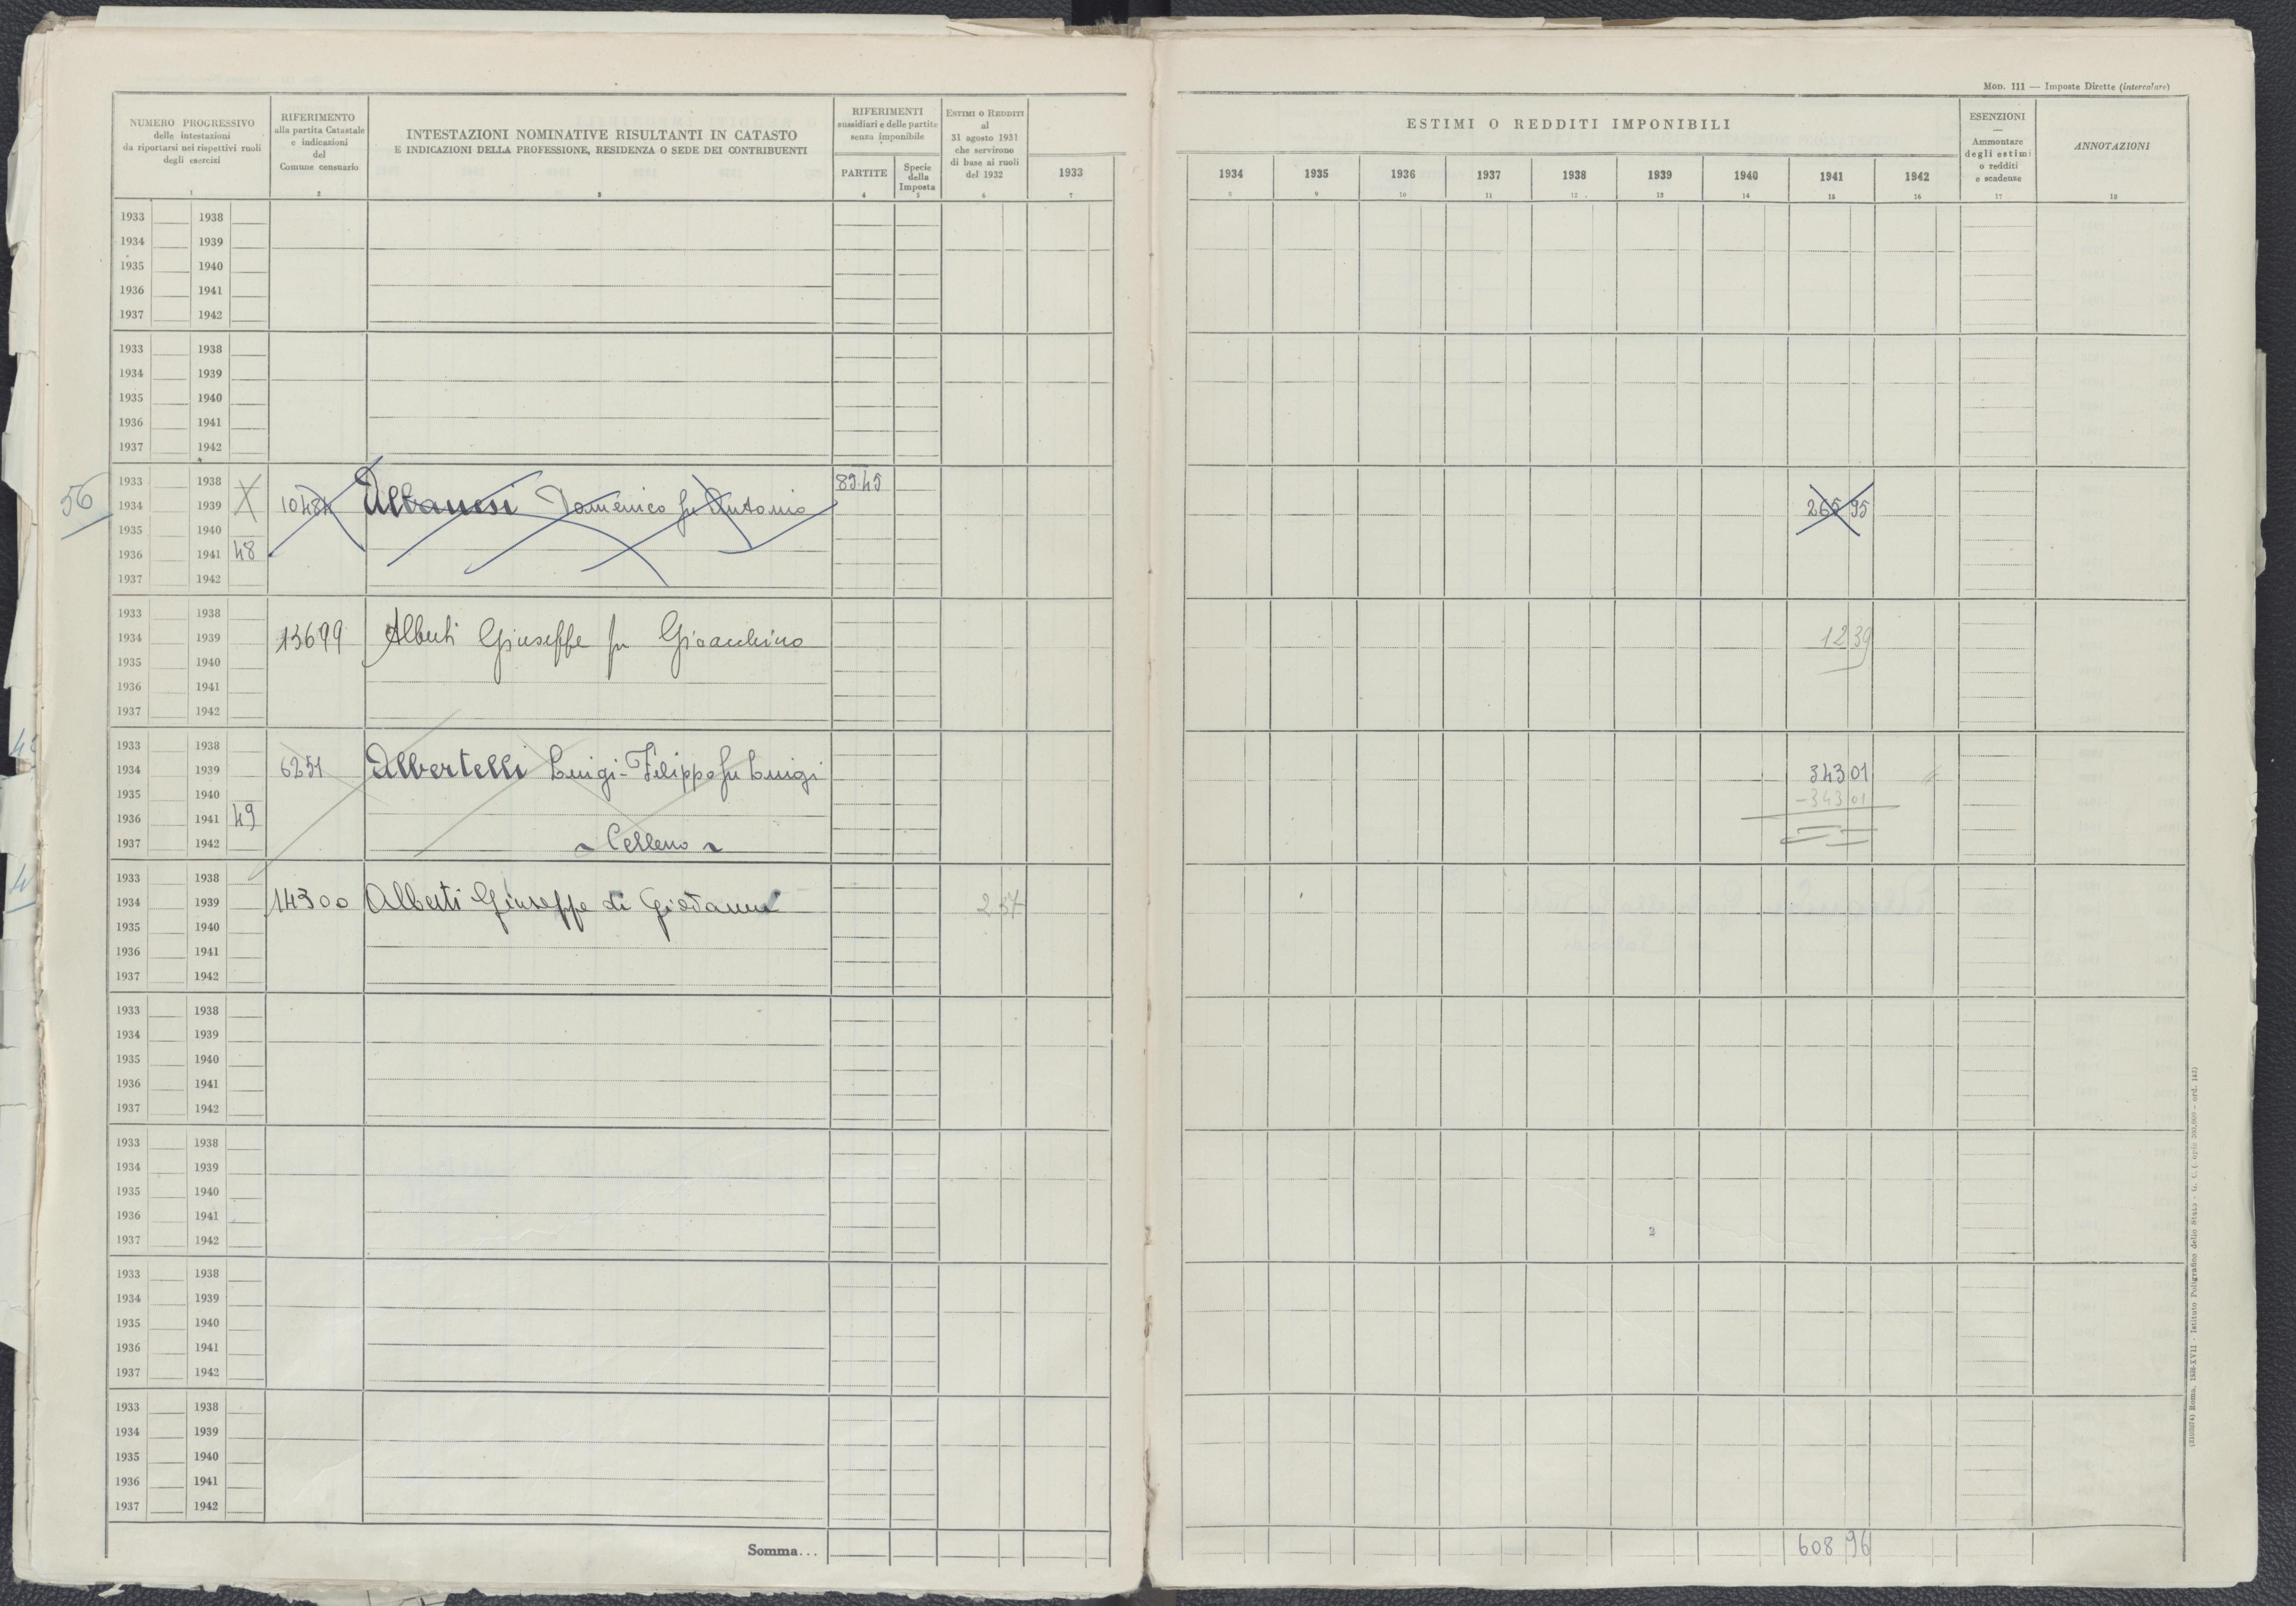 Mod. 111 — Imposte Dirette (intercalare)
NUMERO PROGRESSIVO
delle intestazioni
da riportarsi nei rispettivi ruoli
degli esercizi
1
RIFERIMENTO
alla partita Catastale
e indicazioni
del
Comune censuario
2
INTESTAZIONI NOMINATIVE RISULTANTI IN CATASTO
E INDICAZIONI DELLA PROFESSIONE, RESIDENZA O SEDE DEI CONTRIBUENTI
3
RIFERIMENTI
sussidiari e delle partite
senza imponibile
PARTITE
4
Specie
della
Imposta
5
Estimi o Redditi
al
31 agosto 1931
che servirono
di base ai ruoli
del 1932
6
1933
7
ESTIMI O REDDITI IMPONIBILI
1934 1935 1936 1937 1938 1939 1940 1941 1942
8 9 10 11 12 13 14 15 16
ESENZIONI
—
Ammontare
degli estimi
o redditi
e scadenze
17
ANNOTAZIONI
18
1933 1938
1934 1939
1935 1940
1936 1941
1937 1942
1933 1938
1934 1939
1935 1940
1936 1941
1937 1942
1933 1938 8545
56 1934 1939 X 10484 Albanesi Domenico fu Antonio 265 95
1935 1940
1936 1941 48
1937 1942
1933 1938
1934 1939 13699 Alberti Giuseppe fu Gioacchino 12 39
1935 1940
1936 1941
1937 1942
1933 1938
1934 1939 6251 Albertelli Luigi-Filippo fu Luigi 343 01
1935 1940 -343 01
1936 1941 49
1937 1942 Celleno
1933 1938
1934 1939 14300 Alberti Giuseppe di Giovanni 2 57
1935 1940
1936 1941
1937 1942
1933 1938
1934 1939
1935 1940
1936 1941
1937 1942
1933 1938
1934 1939
1935 1940
1936 1941
1937 1942 2
1933 1938
1934 1939
1935 1940
1936 1941
1937 1942
1933 1938
1934 1939
1935 1940
1936 1941
1937 1942
Somma... 608 96